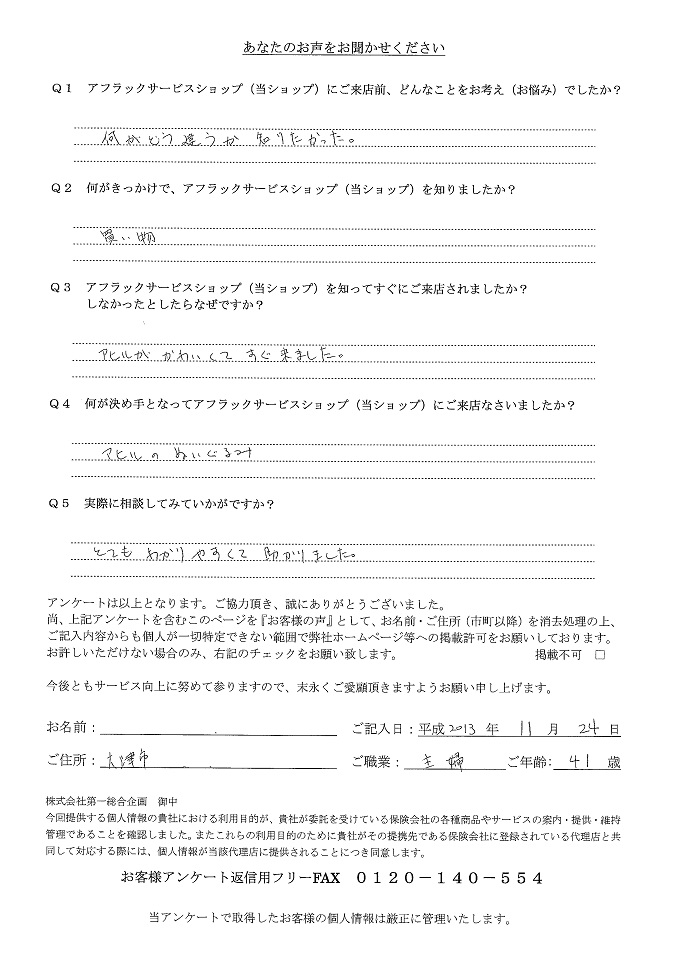 あなたのお声をお聞かせください
Q1 アフラックサービスショップ（当ショップ）にご来店前、どんなことをお考え（お悩み）でしたか？
何がどう違うか 知りたかった。
Q2 何がきっかけで、アフラックサービスショップ（当ショップ）を知りましたか？
買い物
Q3 アフラックサービスショップ（当ショップ）を知ってすぐにご来店されましたか？
しなかったとしたらなぜですか？
アヒルが かわいくて すぐ来ました。
Q4 何が決め手となってアフラックサービスショップ（当ショップ）にご来店なさいましたか？
アヒルの ぬいぐるみ
Q5 実際に相談してみていかがですか？
とても わかりやすくて 助かりました。
アンケートは以上となります。ご協力頂き、誠にありがとうございました。
尚、上記アンケートを含むこのページを『お客様の声』として、お名前・ご住所（市町以降）を消去処理の上、
ご記入内容からも個人が一切特定できない範囲で弊社ホームページ等への掲載許可をお願いしております。
お許しいただけない場合のみ、右記のチェックをお願い致します。 掲載不可 □
今後ともサービス向上に努めて参りますので、末永くご愛顧頂きますようお願い申し上げます。
お名前： ご記入日：平成2013年 11月 24日
ご住所：大津市 ご職業：主婦 ご年齢：41歳
株式会社第一総合企画 御中
今回提供する個人情報の貴社における利用目的が、貴社が委託を受けている保険会社の各種商品やサービスの案内・提供・維持
管理であることを確認しました。またこれらの利用目的のために貴社がその提携先である保険会社に登録されている代理店と共
同して対応する際には、個人情報が当該代理店に提供されることにつき同意します。
お客様アンケート返信用フリーFAX 0120－140－554
当アンケートで取得したお客様の個人情報は厳正に管理いたします。